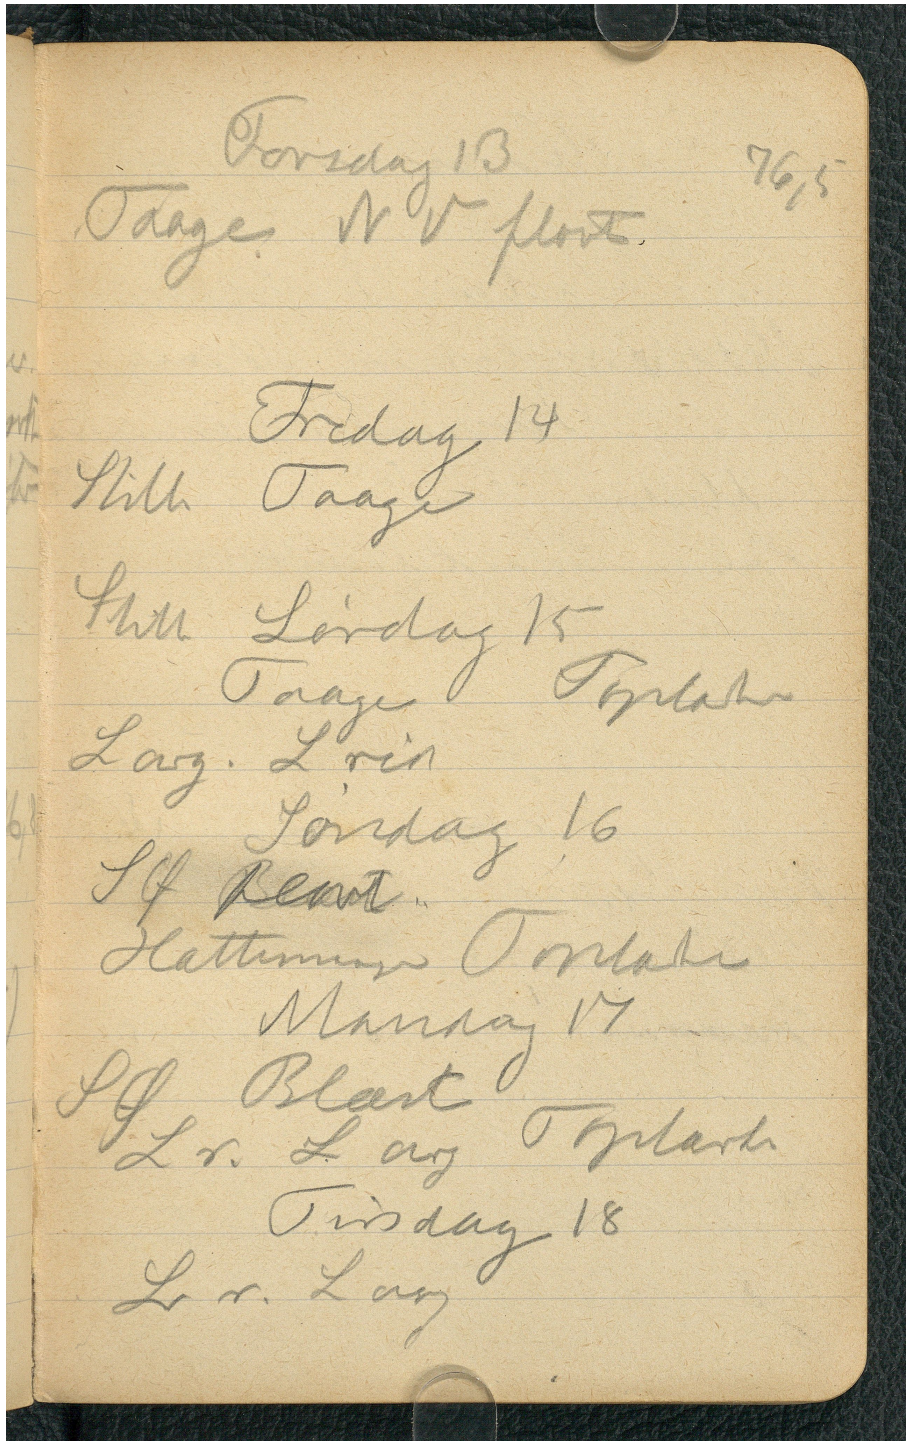 Torsdag 13
76,5
Taage. N V flovt.
Fredag 14
Stille Taage
Stille Lørdag 15
Taage Toplakse
Lavg. L rid
Søndag 16
S Ø Blæst
Hatteminge Toplakse
Mandag 17
S Ø Blæst
L r. L avg
Tirsdag 18
L r. L avg